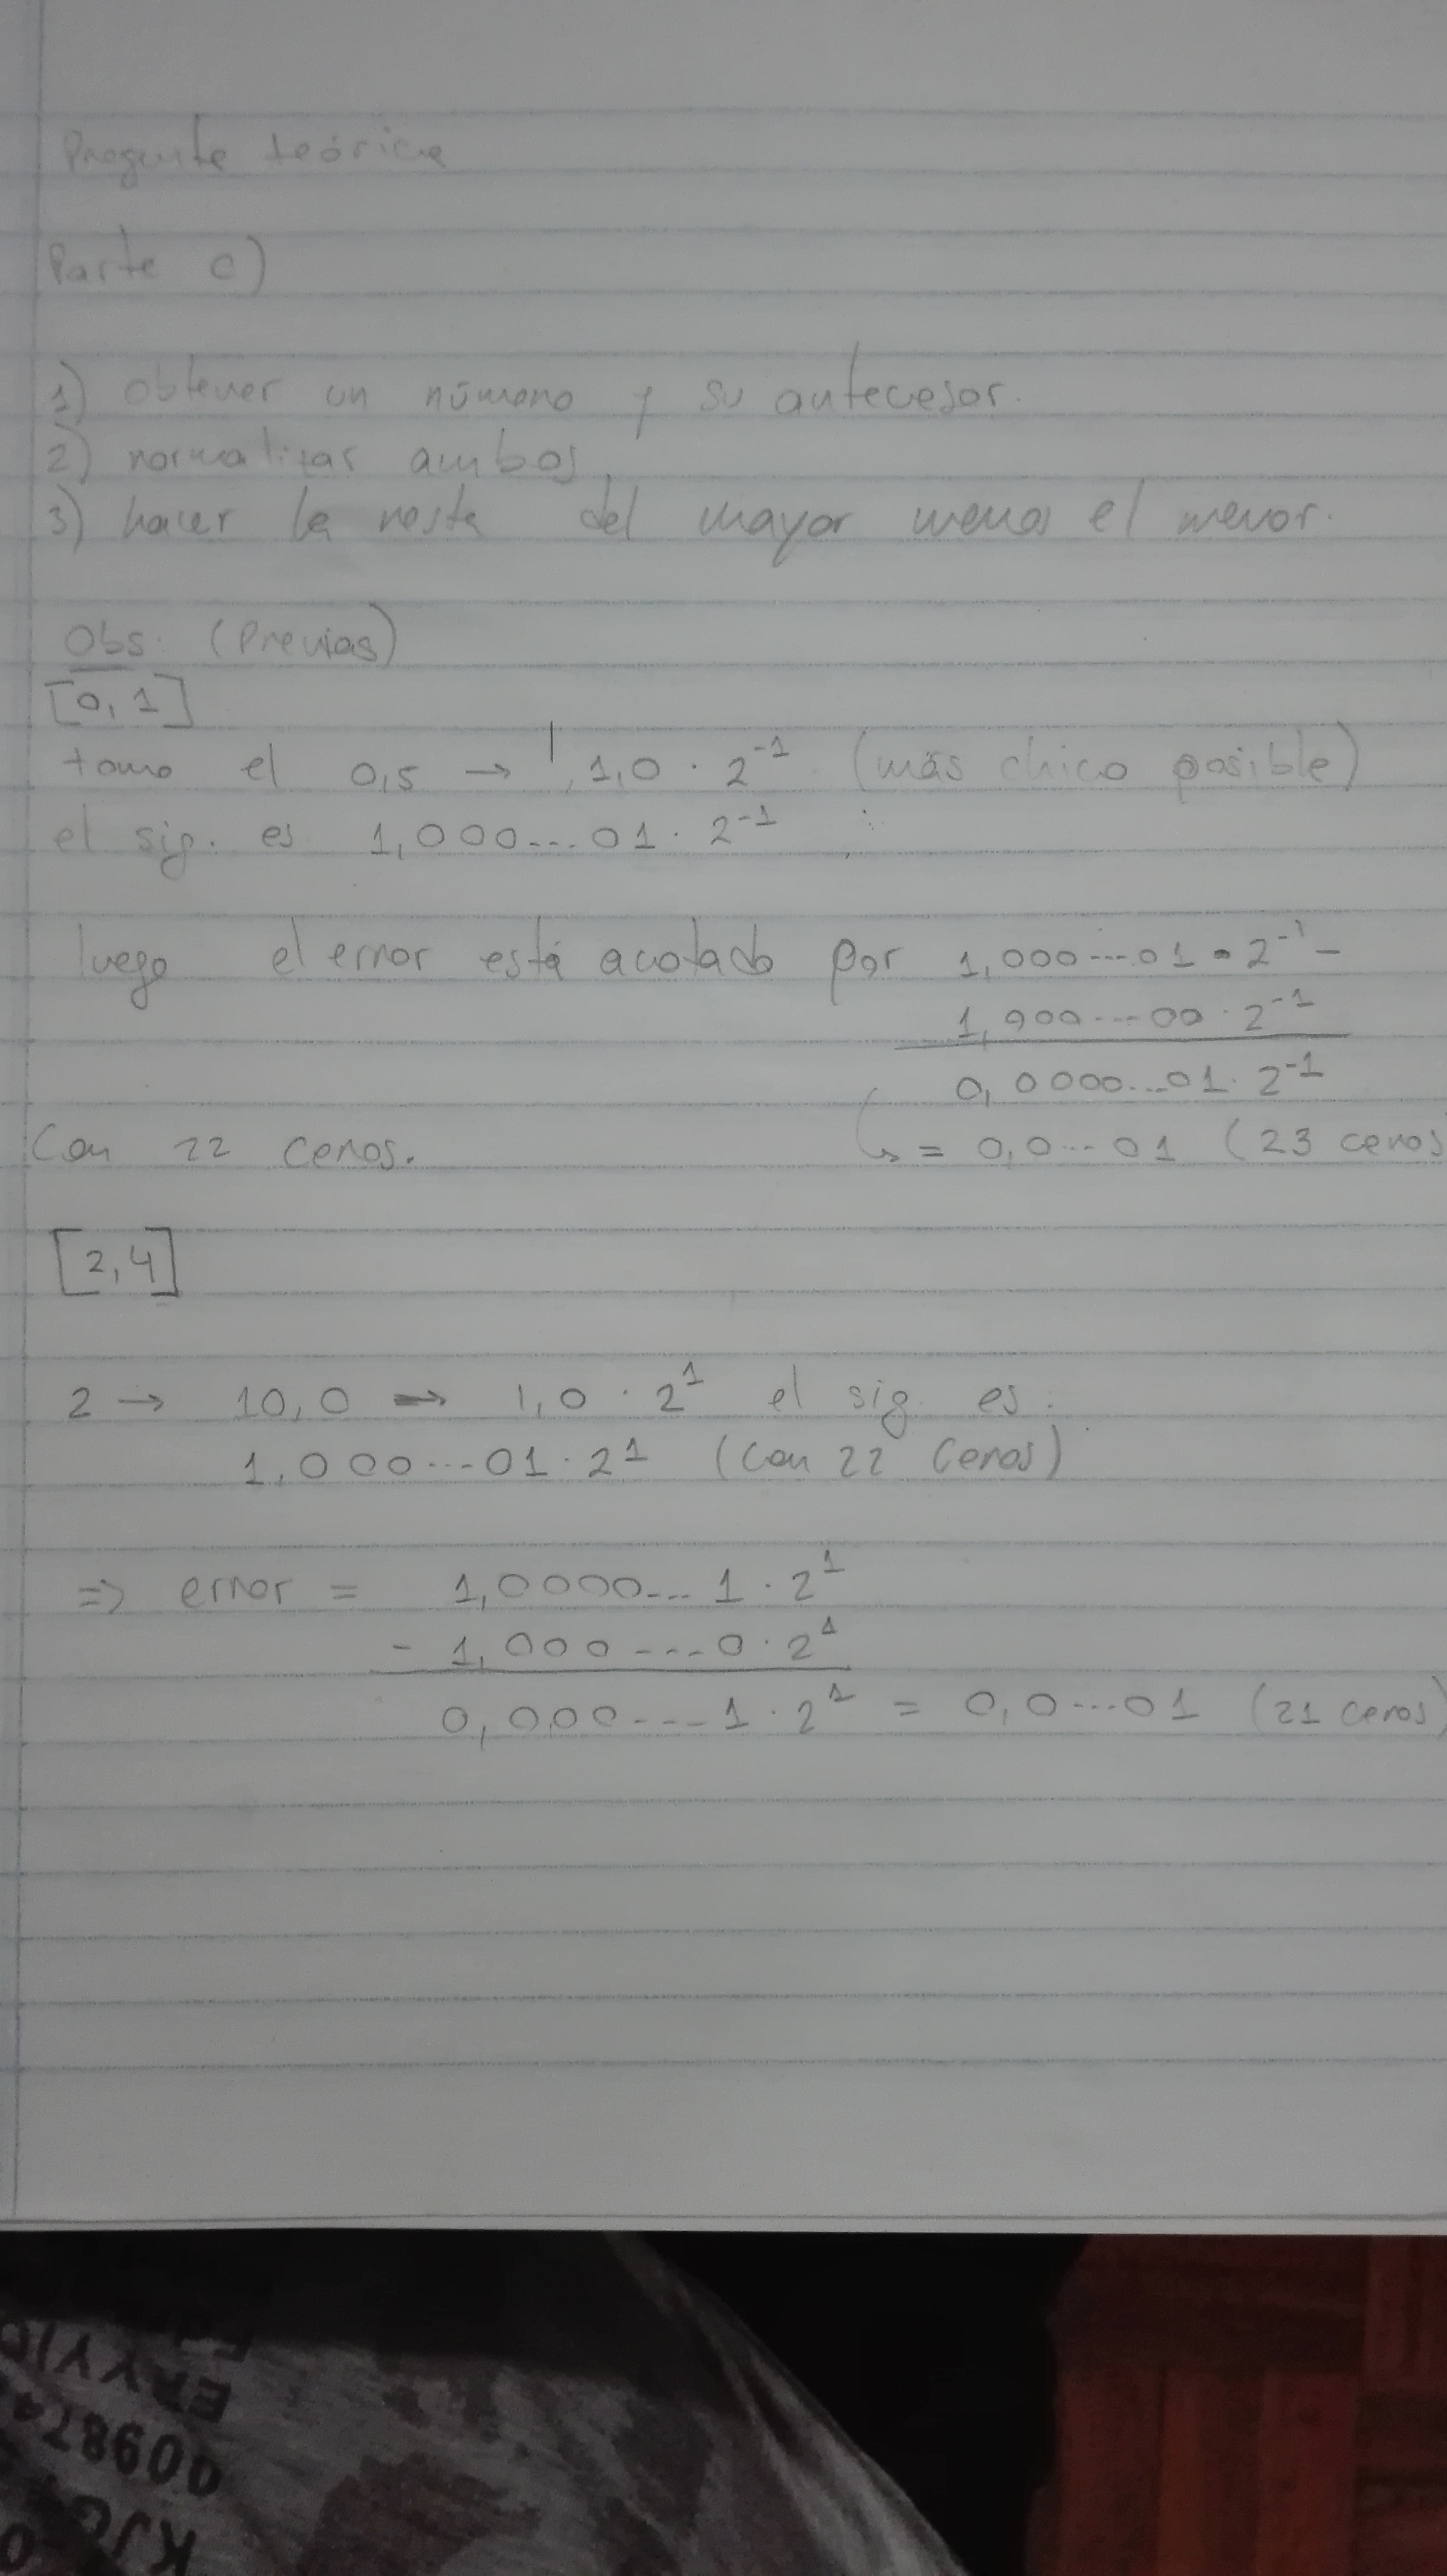 Pregunta teórica
Parte c)
1) obtener un número y su antecesor.
2) normalizar ambos
3) hacer la resta del mayor menos el menor.
Obs. (Previas)
[0, 1]
tomo el 0,5 → 1,0 · 2^-1 (más chico posible)
el sig. es 1,000...01 · 2^-1
luego el error está acotado por 1,000...01 · 2^-1 -
1,000...00 · 2^-1
0,0000...01 · 2^-1
Con 22 ceros.
↳ = 0,0...01 (23 ceros)
[2,4]
2 → 10,0 → 1,0 · 2^1 el sig. es:
1,000...01 · 2^1 (con 22 ceros)
=> error = 1,0000...1 · 2^1
- 1,000...0 · 2^1
0,000...1 · 2^1 = 0,0...01 (21 ceros)